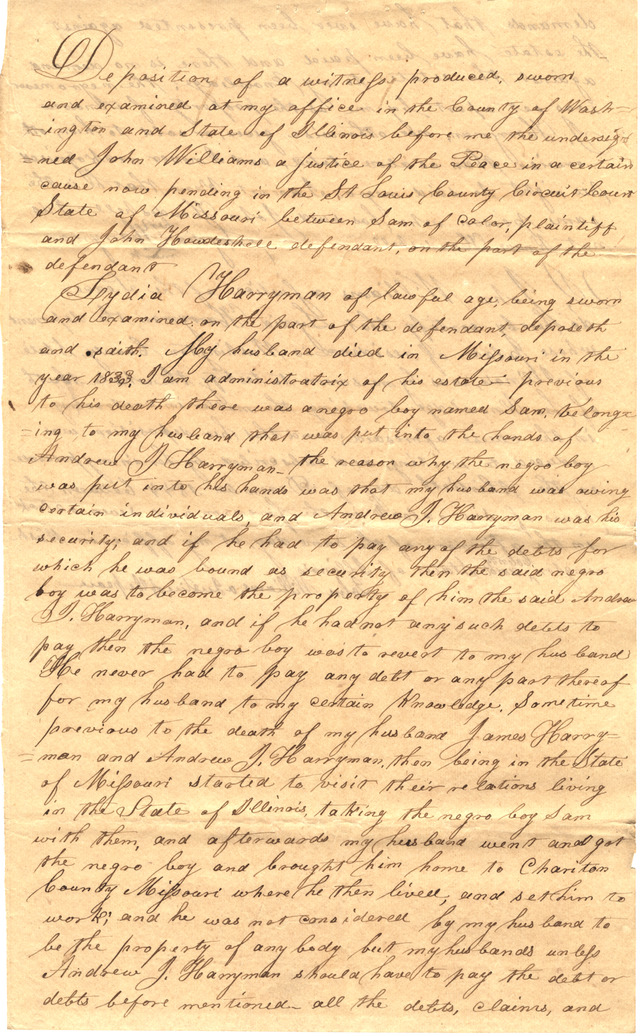 Deposition of a witness produced, sworn
and examined at my office in the County of Wash-
ington and State of Illinois before me the undersig-
=ned John Williams a justice of the Peace in a certain
cause now pending in the St Louis County Circuit Court
State of Missouri between Sam of Color, plaintiff
and John Howdeshell defendant, on the part of the
defendant
Lydia Harryman of lawful age, being sworn
and examined on the part of the defendant deposeth
and saith, My husband died in Missouri in the
year I am administratrix of his estate— previous
to his death there was a negro boy named Sam, belong=
=ing to my husband that was put into the hands of
Andrew J Harryman— the reason why the negro boy
was put into his hands was that my husband was owing
certain individuals, and Andrew J. Harryman was his
security; and if he had to pay any of the debts for
which he was bound as security then the said negro
boy was to become the property of him the said Andrew
J. Harryman, and if he had not any such debts to
pay then the negro boy was to revert to my husband
He never had to pay any debt or any part thereof
for my husband to my certain knowledge. Sometime
previous to the death of my husband James Harry=
=man and Andrew J. Harryman, then being in the State
of Missouri started to visit their relations living
in the State of Illinois, taking the negro boy Sam
with them, and afterwards my husband went and got
the negro boy and brought him home to Chariton
County Missouri where he then lived, and set him to
work; and he was not considered by my husband to
be the property of any body but my husbands unless
Andrew J. Harryman should have to pay the debt or
debts before mentioned— all the debts, claims, and